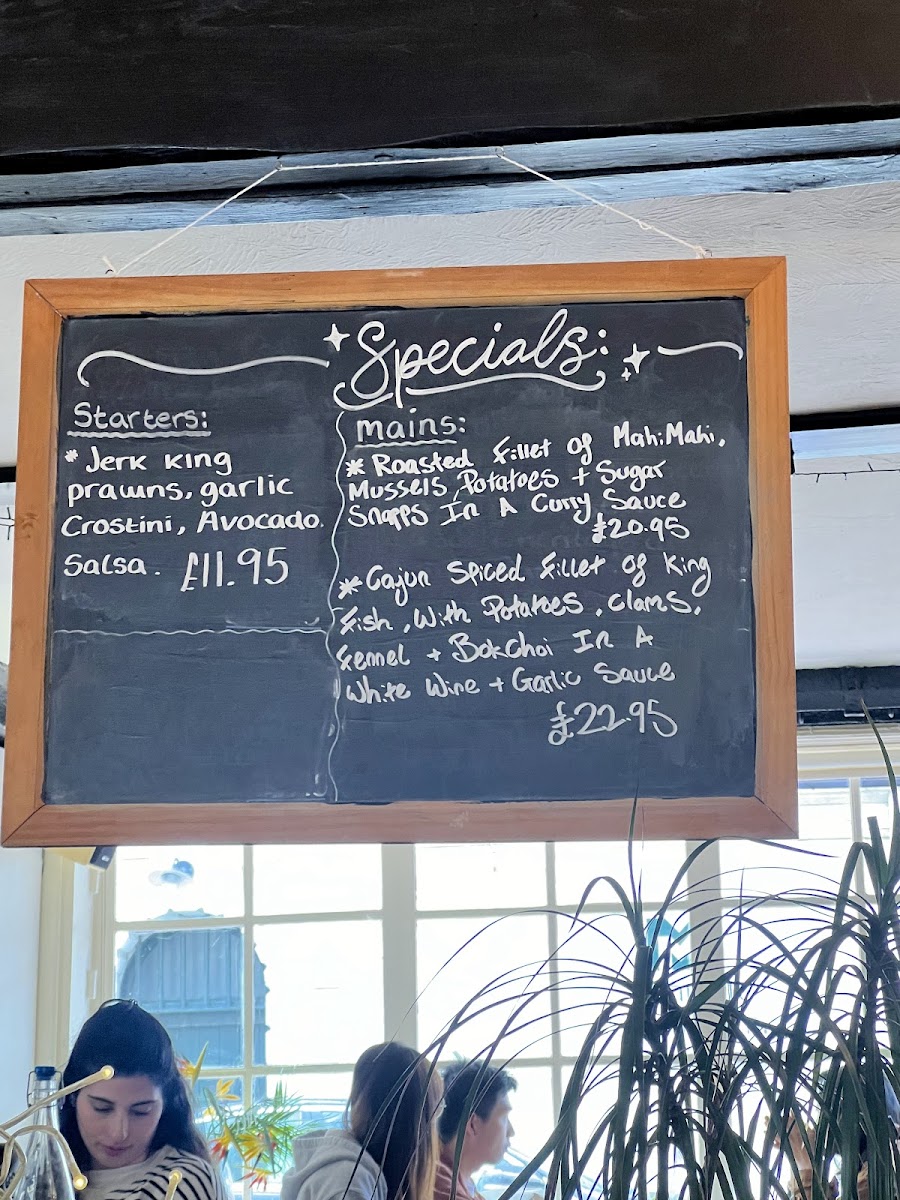 Specials:
Starters:
* Jerk King
prawns, garlic
Crostini, Avocado
Salsa. £11.95
mains:
* Roasted Fillet of Mahi Mahi,
Mussels, Potatoes + Sugar
Snapps In A Curry Sauce
£20.95
* Cajun Spiced Fillet of King
Fish, With Potatoes, Clams,
Fennel + BokChoi In A
White Wine + Garlic Sauce
£22.95